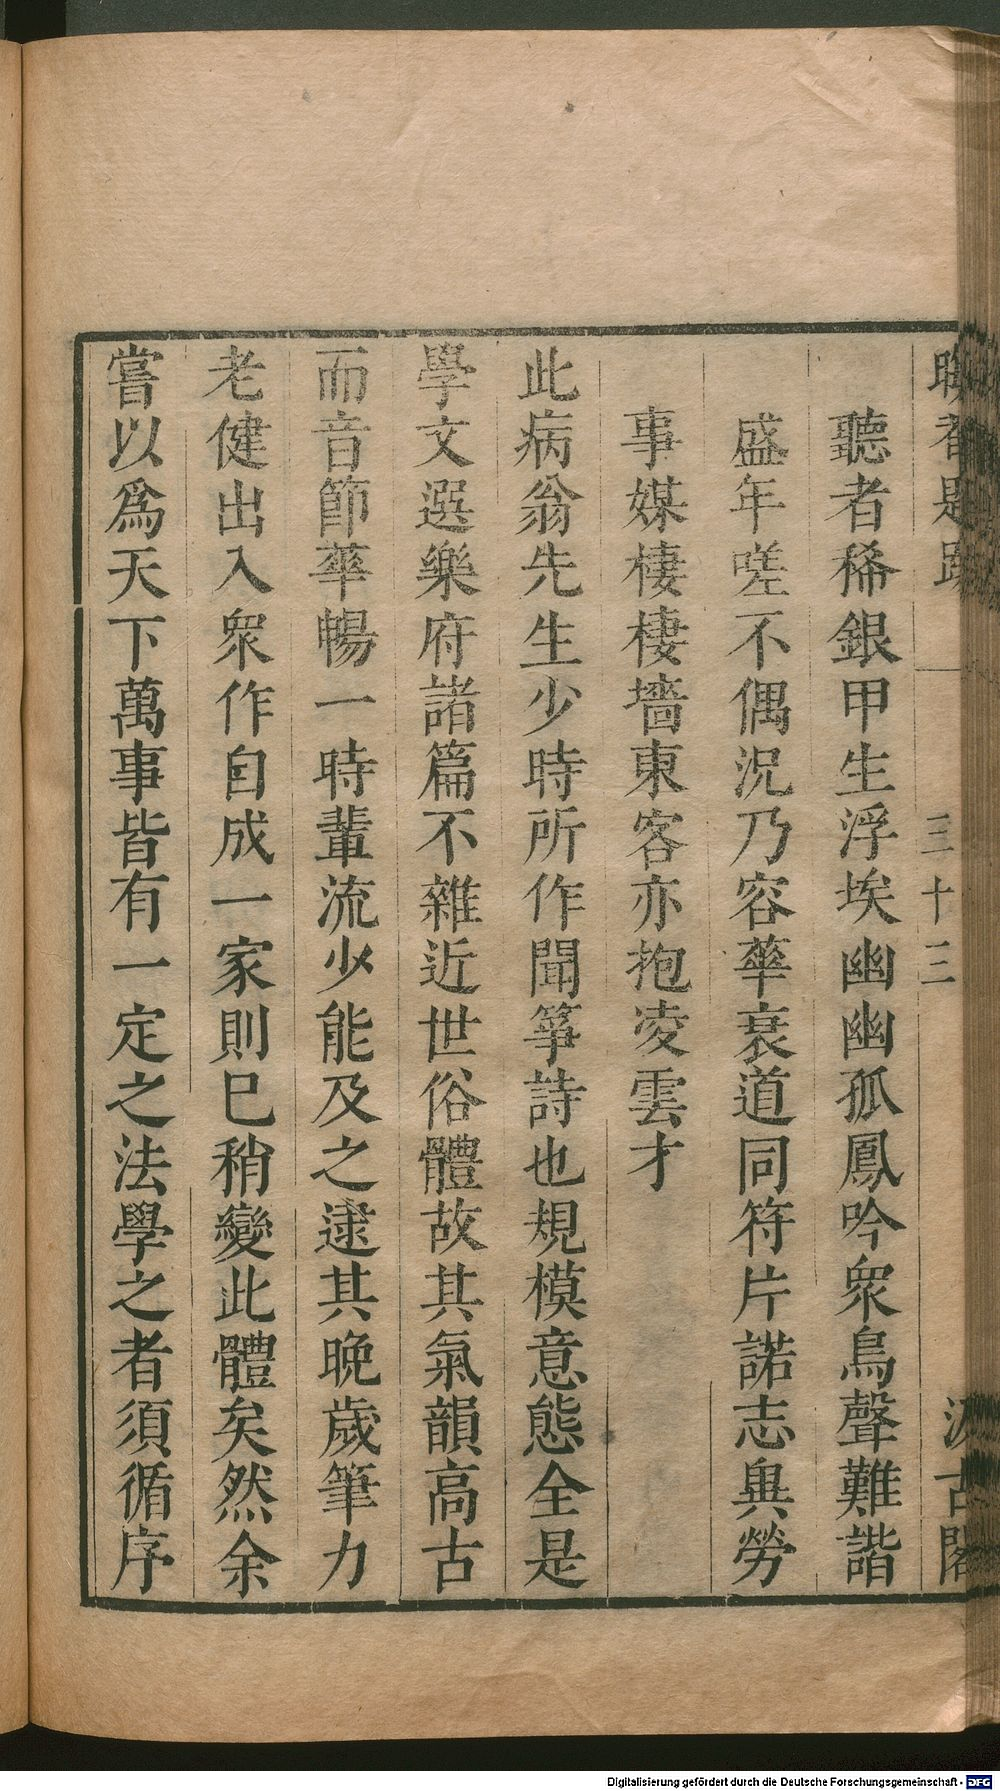 晦菴題跋 三十三 汲古閣
聽者稀銀甲生浮埃幽幽孤鳳吟衆鳥聲難諧
盛年嗟不偶況乃容華衰道同符片諾志與勞
事媒棲棲墻東客亦抱凌雲才
此病翁先生少時所作聞箏詩也規模意態全是
學文選樂府諸篇不雜近世俗體故其氣韻高古
而音節華暢一時輩流少能及之逮其晩歲筆力
老健出入衆作自成一家則巳稍變此體矣然余
嘗以爲天下萬事皆有一定之法學之者須循序
Digitalisierung gefördert durch die Deutsche Forschungsgemeinschaft - DFG